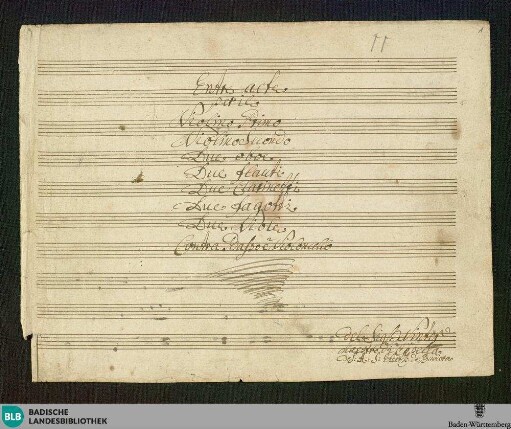 11
Entre acte
per il
Violino Primo
Violino Secondo
Due oboe
Due flauti
Due Clarinetti
Due fagotti
Due Viole
Contra Basso e Violoncello
Del Sigl.
maestro di
BLB BADISCHE
LANDESBIBLIOTHEK
Baden-Württemberg